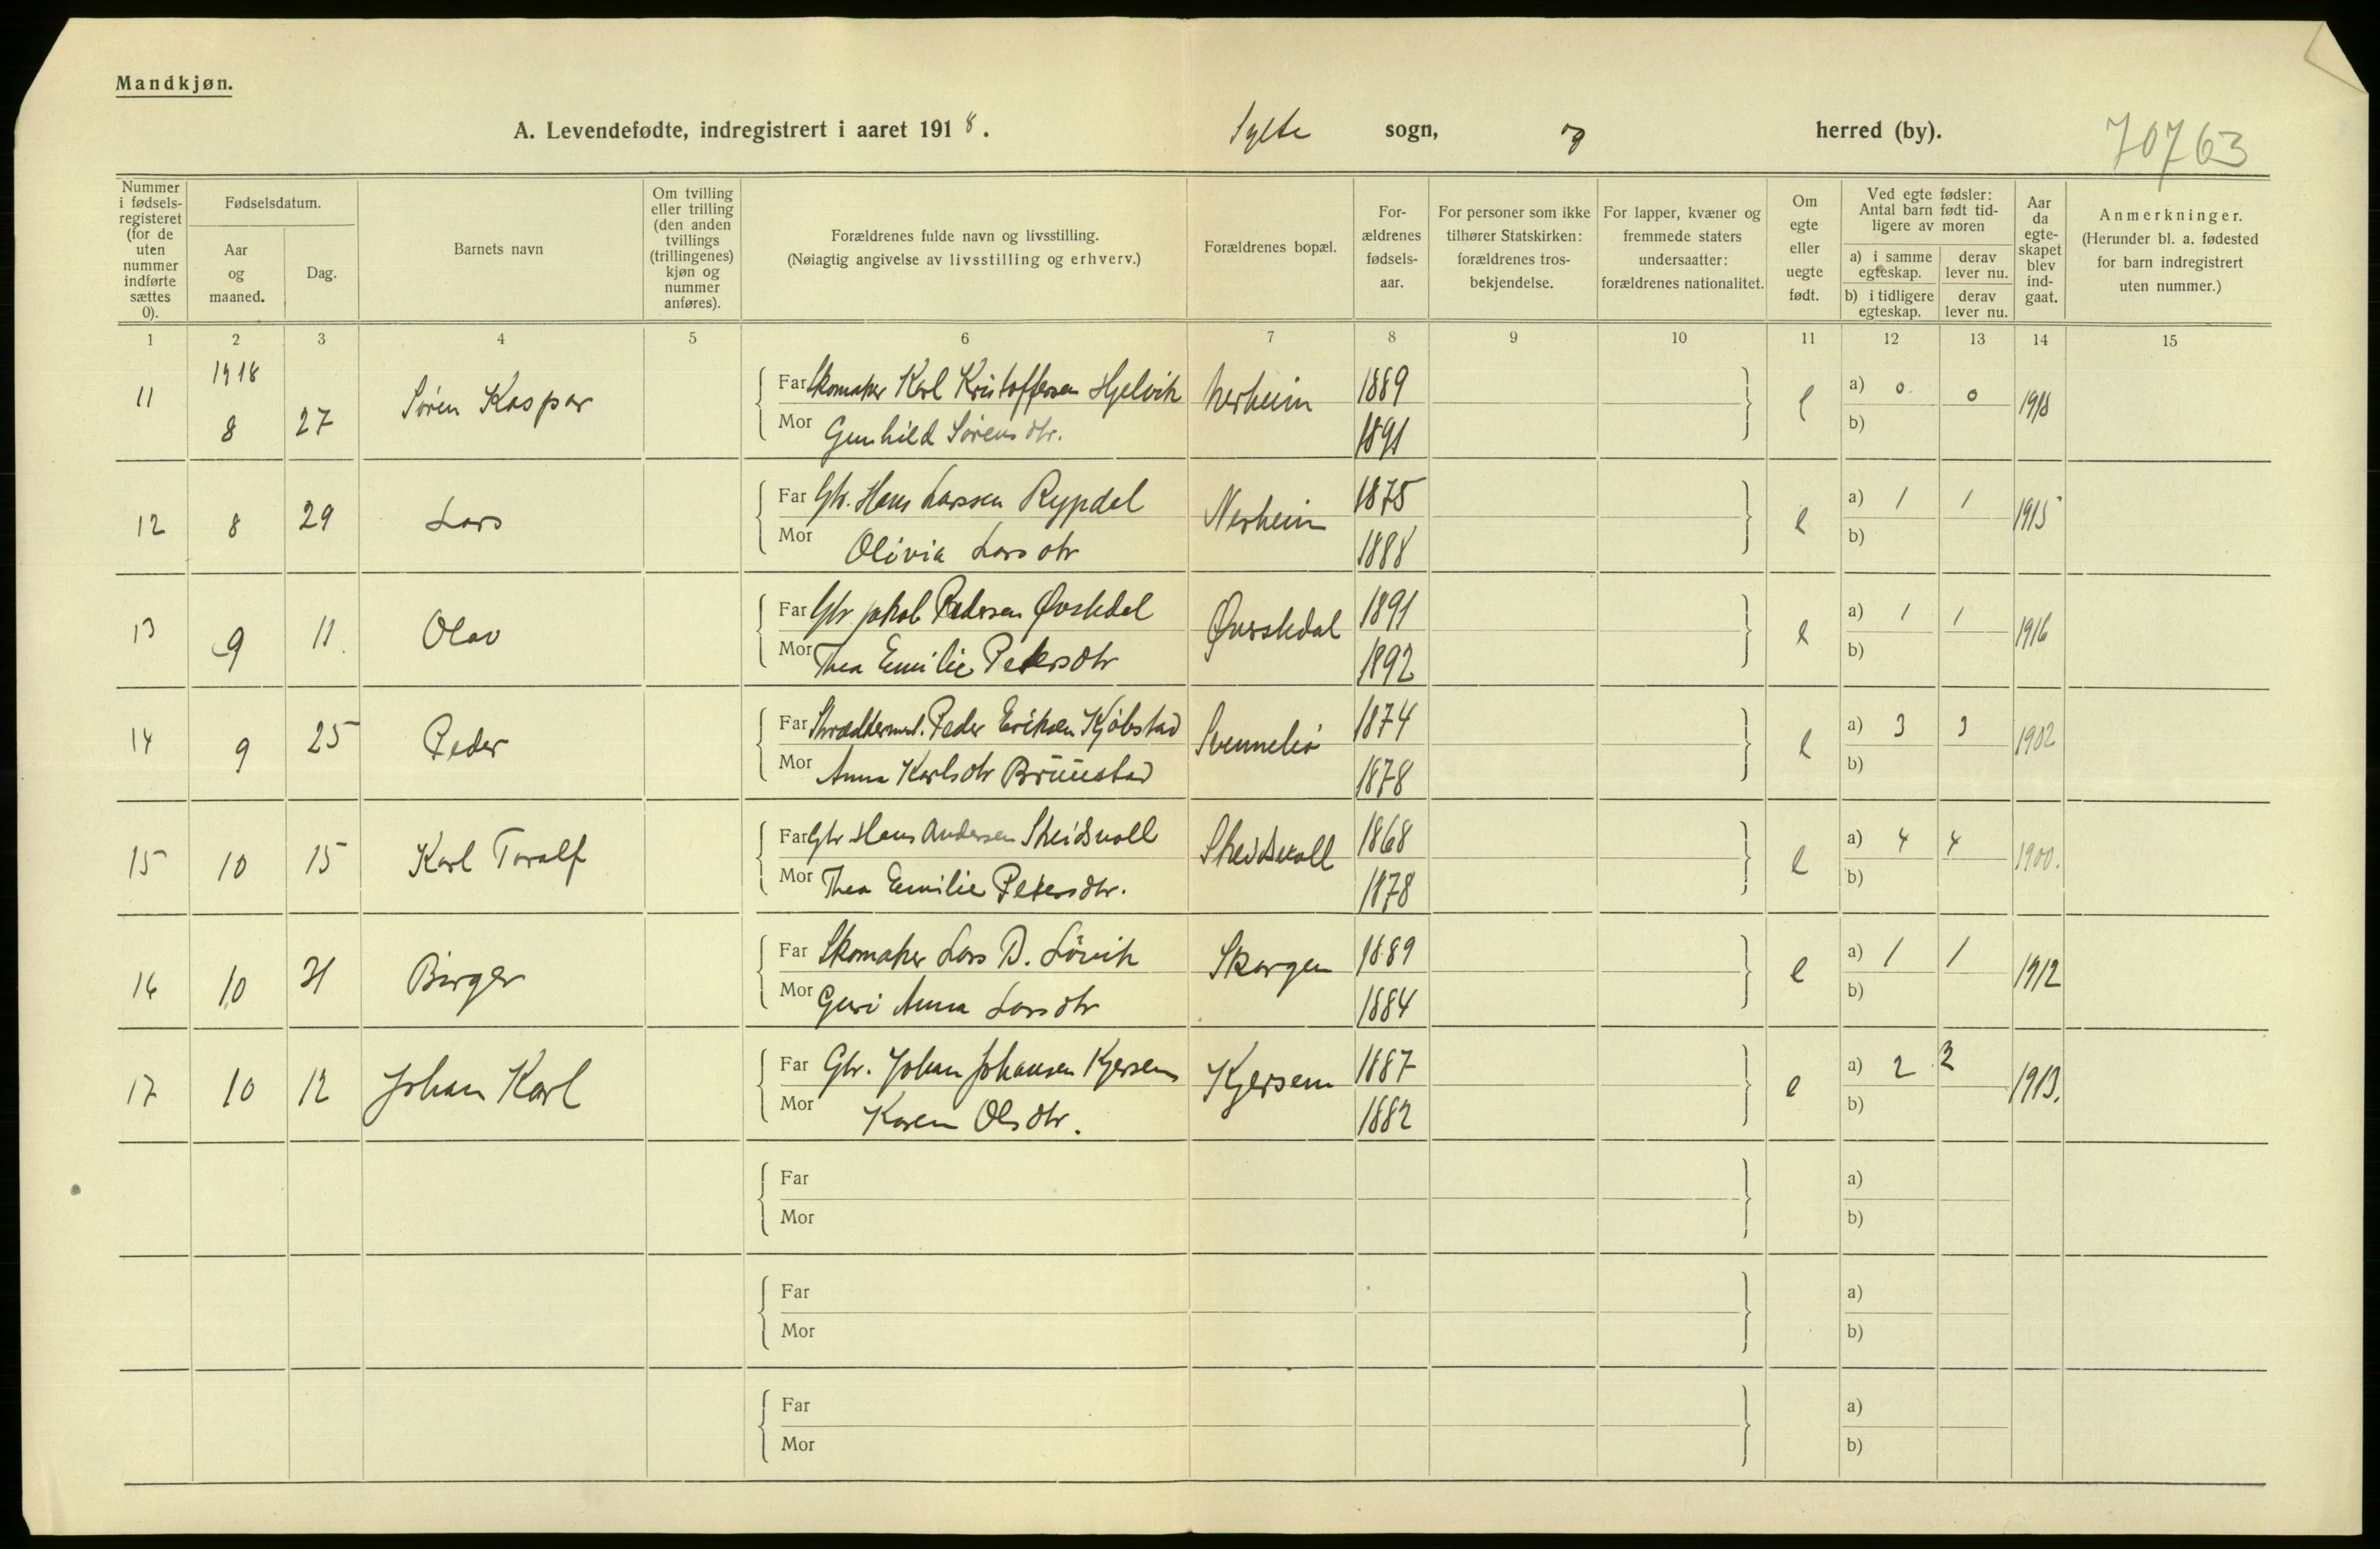 Mandkjøn.
A. Levendefødte, indregistrert i aaret 1918. Sylte sogn, og herred (by). 70763
Nummer i fødsels-registeret (for de uten nummer indførte sættes 0).
Fødselsdatum.
Aar og maaned.
Dag.
Barnets navn
Om tvilling eller trilling (den anden tvillings (trillingenes) kjøn og nummer anføres).
Forældrenes fulde navn og livsstilling.
(Nøiagtig angivelse av livsstilling og erhverv.)
Forældrenes bopæl.
For-ældrenes fødsels-aar.
For personer som ikke tilhører Statskirken: forældrenes tros-bekjendelse.
For lapper, kvæner og fremmede staters undersaatter: forældrenes nationalitet.
Om egte eller uegte født.
Ved egte fødsler: Antal barn født tid-ligere av moren
a) i samme egteskap.
derav lever nu.
b) i tidligere egteskap.
derav lever nu.
Aar da egte-skapet blev ind-gaat.
Anmerkninger.
(Herunder bl. a. fødested for barn indregistrert uten nummer.)
1 2 3 4 5 6 7 8 9 10 11 12 13 14 15
1918
11 8 27 Søren Kaspar Far Skomaker Karl Kristoffersen Hjelvik Nerheim 1889 e a) 0 0 1918
Mor Gunhild Sørensdtr. 1891 b)
12 8 29 Lars Far Gbr. Hans Larssen Rypdal Nerheim 1875 e a) 1 1 1915
Mor Olivia Larsdtr 1888 b)
13 9 11 Olav Far Gbr Jakob Pedersen Øvstedal Øverstedal 1891 e a) 1 1 1916
Mor Thea Emilie Petersdtr 1892 b)
14 9 25 Peder Far Peder Eriksen Kjøbstad 1874 e a) 3 3 1902
Mor Anna Karlsdtr 1878 b)
15 10 15 Karl Toralf Far Gbr Hans Andersen Skeidsvoll Skeidsvoll 1868 e a) 4 4 1900.
Mor Thea Emilie Petersdtr. 1878 b)
16 10 31 Birger Far Skomaker Lars D. Løvik Skorgen 1889 e a) 1 1 1912
Mor Guri Anna Larsdtr 1884 b)
17 10 12 Johan Karl Far Gbr. Johan Johansen Kjersem Kjersem 1887 e a) 2 2 1913.
Mor Karen Olsdtr. 1882 b)
Far a)
Mor b)
Far a)
Mor b)
Far a)
Mor b)